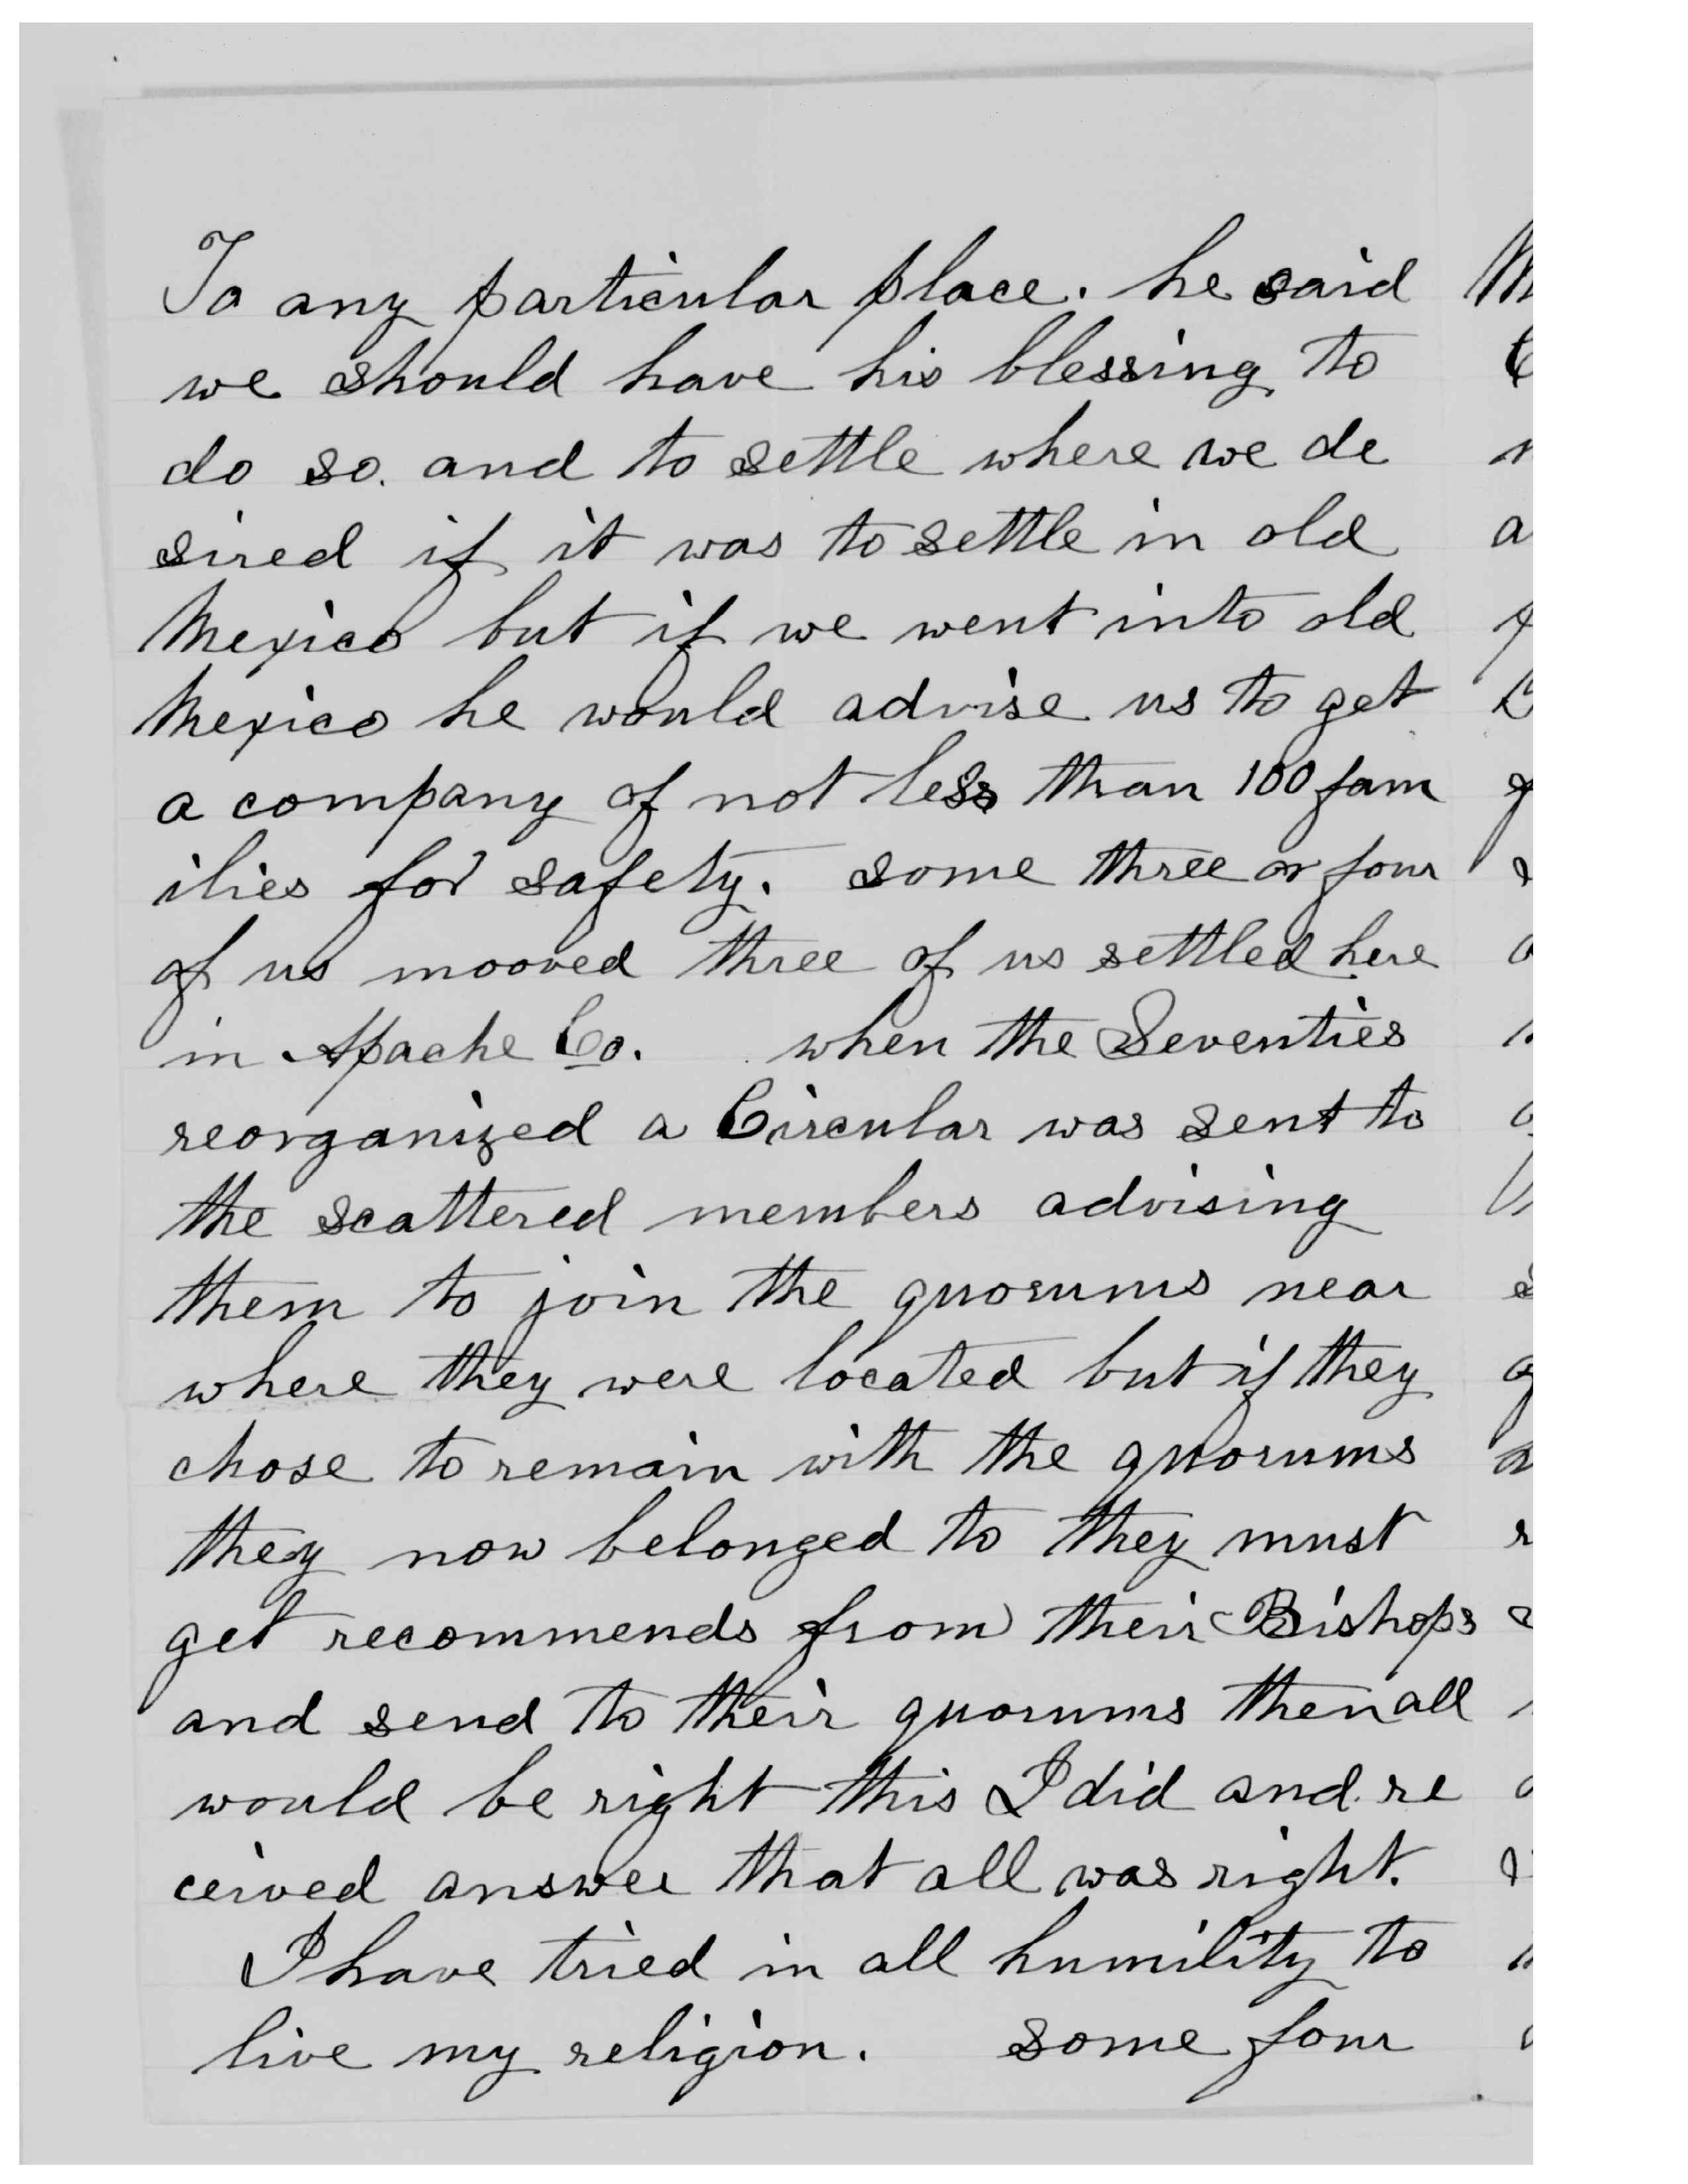 To any particular place. he said
we should have his blessing to
do so. and to settle where we de
sired if it was to settle in old
Mexico but if we went into old
Mexico he would advise us to get
a company of not less than 100 fam
ilies for safety. some three or four
of us mooved three of us settled here
in Apache Co. when the Seventies
reorganized a Circular was sent to
the scattered members advising
them to join the quorums near
where they were located but if they
chose to remain with the quorums
they now belonged to they must
get recommends from their Bishops
and send to their quorums then all
would be right this I did and re
ceived answer that all was right.
I have tried in all humility to
live my religion. some four